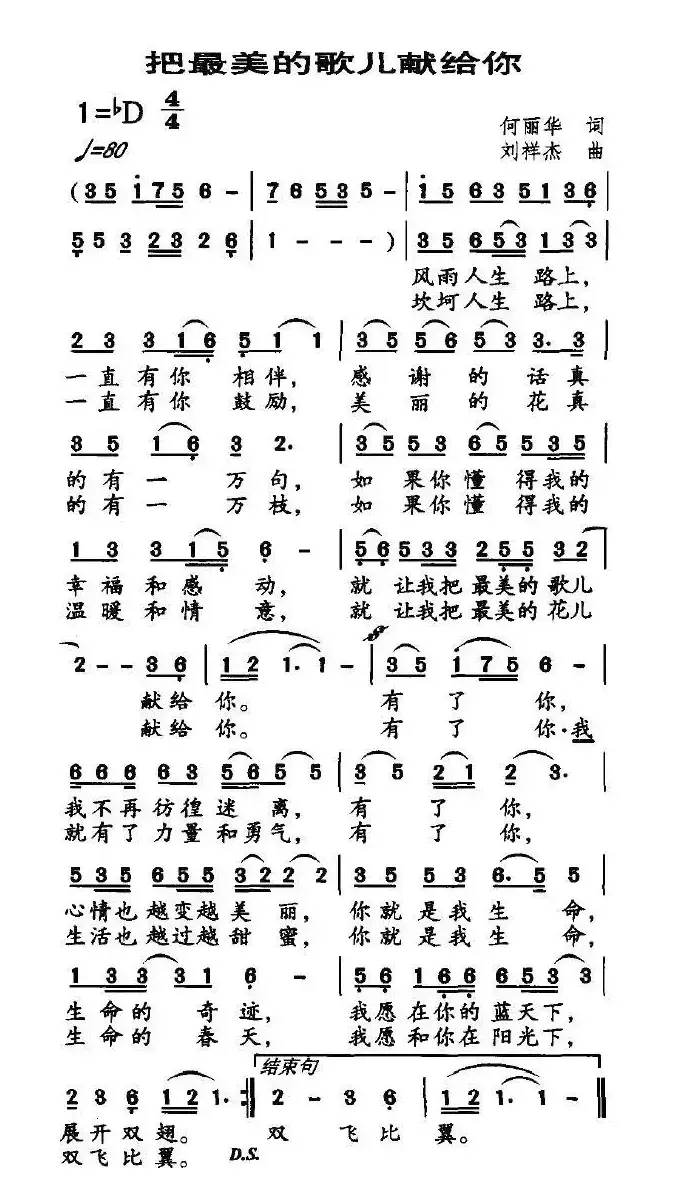 把最美的歌儿献给你
1=♭D 4/4
何丽华 词
♩=80
刘祥杰 曲
(3 5 1 7 5 6 - | 7 6 5 3 5 - | 1 5 6 3 5 1 3 6 |
5 5 3 2 3 2 6 | 1 - - - ) | 3 5 6 5 3 1 3 3
风雨人生 路上,
坎坷人生 路上,
2 3 3 1 6 5 1 1 | 3 5 5 6 5 3 3. 3
一直有你 相伴, 感谢的话真
一直有你 鼓励, 美丽的花真
3 5 1 6 3 2. | 3 5 5 3 6 5 5 3 5
的有一 万句, 如果你懂 得我的
的有一 万枝, 如果你懂 得我的
1 3 3 1 5 6 - | 5 6 5 3 3 2 5 5 3 2
幸福和感 动, 就让我把最美的歌儿
温暖和情 意, 就让我把最美的花儿
2 - - 3 6 | 1 2 1. 1 - | 3 5 1 7 5 6 -
献给你。 有了你,
献给你。 有了你·我
6 6 6 6 3 5 6 5 5 | 3 5 2 1 2 3.
我不再彷徨迷离, 有了你,
就有了力量和勇气, 有了你,
5 3 5 6 5 5 3 2 2 2 | 3 5 5 3 6. 5 5
心情也越变越美丽, 你就是我生命,
生活也越过越甜蜜, 你就是我生命,
1 3 3 3 1 6 - | 5 6 1 6 6 5 3 3
生命的 奇迹, 我愿在你的蓝天下,
生命的 春天, 我愿和你在阳光下,
结束句
2 3 6 1 2 1. :| 2 - 3 6 | 1 2 1. 1 - ||
展开双翅。 双飞比翼。
双飞比翼。 D.S.